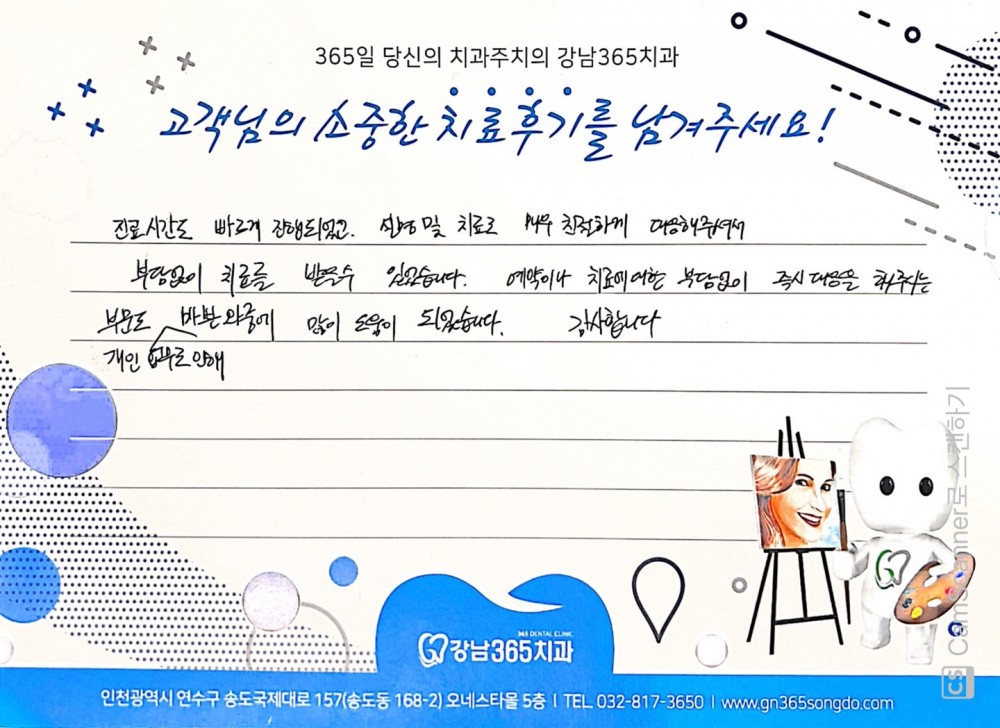 365일 당신의 치과주치의 강남365치과
고객님의 소중한 치료후기를 남겨주세요!
진료시간도 빠르게 진행되었고. 설명 및 치료도 매우 친절하게 대응해주셔서
부담없이 치료를 받을수 있었습니다. 예약이나 치료에 대한 부담없이 즉시 대응을 해주시는
부분도 바쁜 와중에 많이 도움이 되었습니다. 감사합니다
개인 업무로 인해
365 DENTAL CLINIC
강남365치과
인천광역시 연수구 송도국제대로 157(송도동 168-2) 오네스타몰 5층 I TEL 032-817-3650 I www.gn365songdo.com
CS CamScanner로 스캔하기